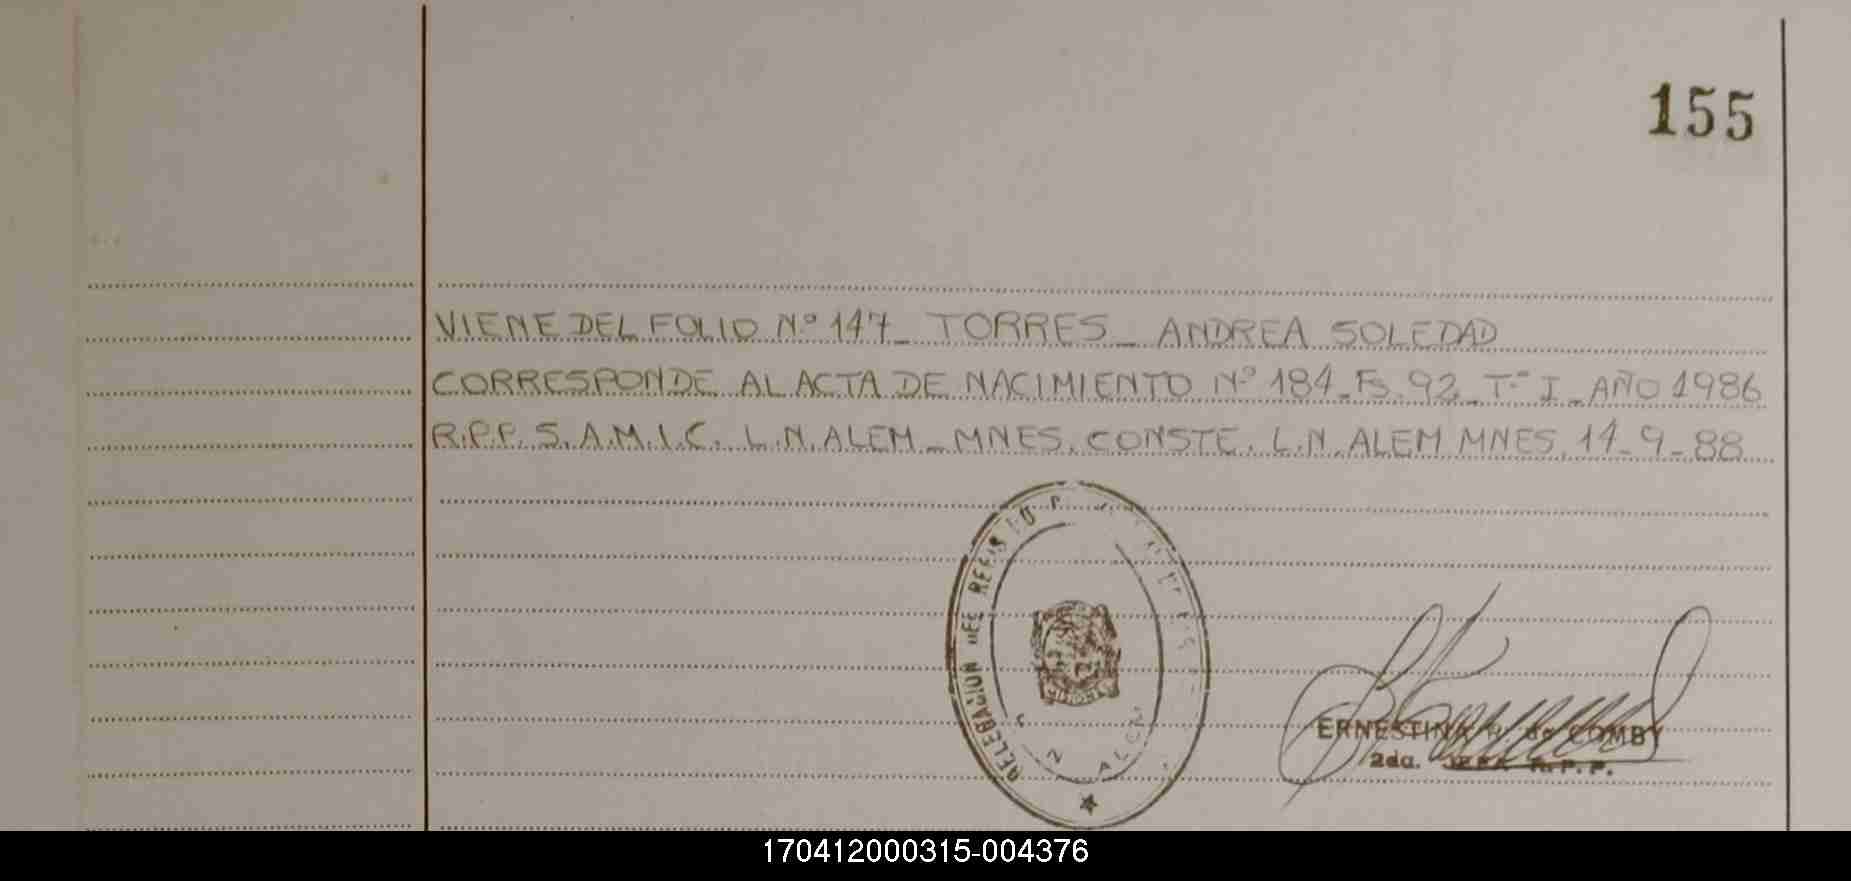 155
VIENE DEL FOLIO N.º 147_ TORRES_ ANDREA SOLEDAD
CORRESPONDE AL ACTA DE NACIMIENTO Nº 184_Fs. 92_Tº I_AÑO 1986
R.P.P. S.A.M.I.C. L.N. ALEM_ MNES. CONSTE. L.N. ALEM MNES, 14_9_88
L N ALEM
ERNESTINA R. de COMBY
2da. JEFA R.P.P.
170412000315-004376